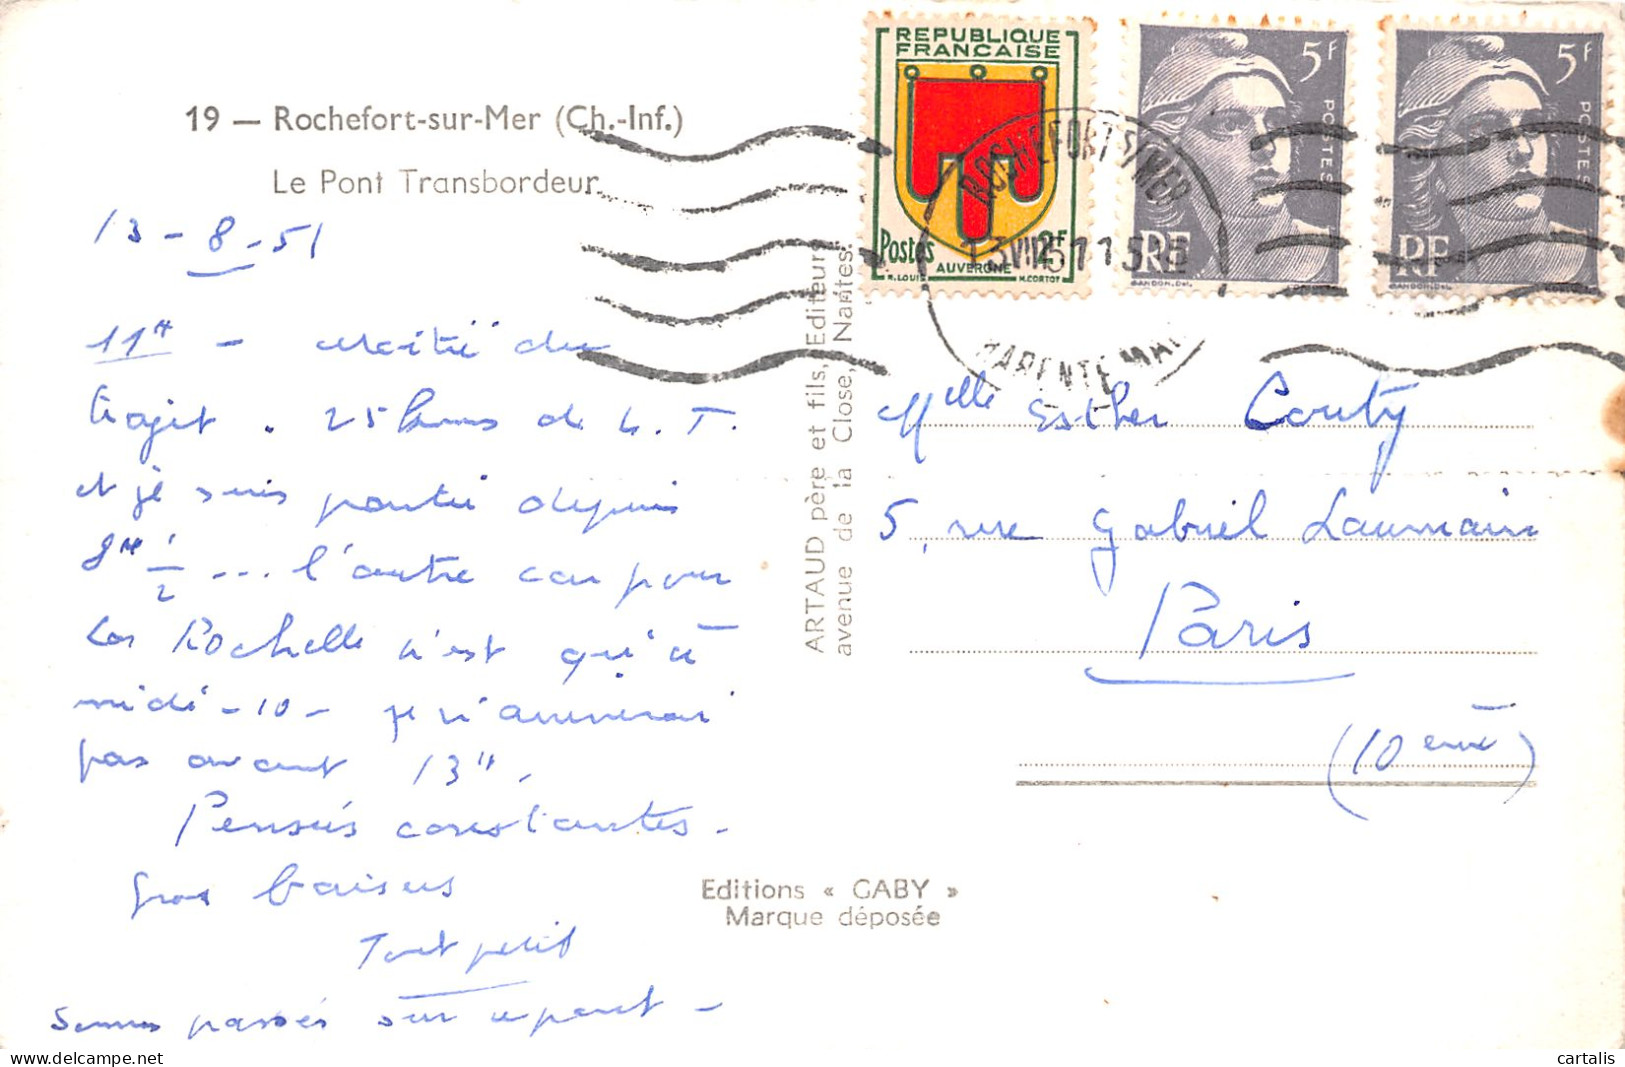 19 — Rochefort-sur-Mer (Ch.-Inf.)
Le Pont Transbordeur.
13 - 8 - 51
11H - moitié du
trajet. 25 kms de L. T.
et je suis partie depuis
8H 1/2 ... l'autre car pour
La Rochelle n'est qu'à
midi - 10 - je n'arriverai
pas avant 13H.
Pensées constantes -
Gros baisers
Tout petit
Sommes passés sur ce pont -
ARTAUD père et fils, Editeurs
avenue de la Close, Nantes.
Editions « GABY »
Marque déposée
REPUBLIQUE
FRANCAISE
Postes 2F
AUVERGNE
R. LOUIS H. CORTOT
5F
POSTES
RF
GANDON. Del.
5F
POSTES
RF
GANDON. Del.
ROCHEFORT S/MER
13 VIII 51 15
CHARENTE MME
Melle Esther Couty
5, rue Gabriel Laumain
Paris
(10 eme)
cartalis